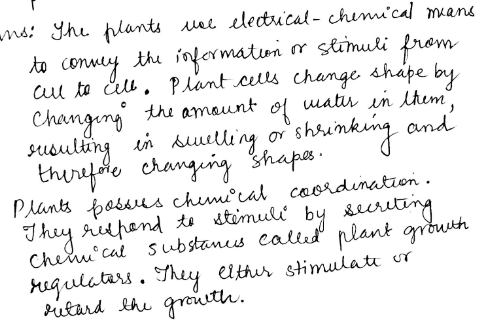 ns: The plants use electrical-chemical means
to convey the information or stimuli from
cell to cell. Plant cells change shape by
changing the amount of water in them,
resulting in swelling or shrinking and
therefore changing shapes.
Plants possess chemical coordination.
They respond to stimuli by secreting
chemical substances called plant growth
regulators. They either stimulate or
retard the growth.